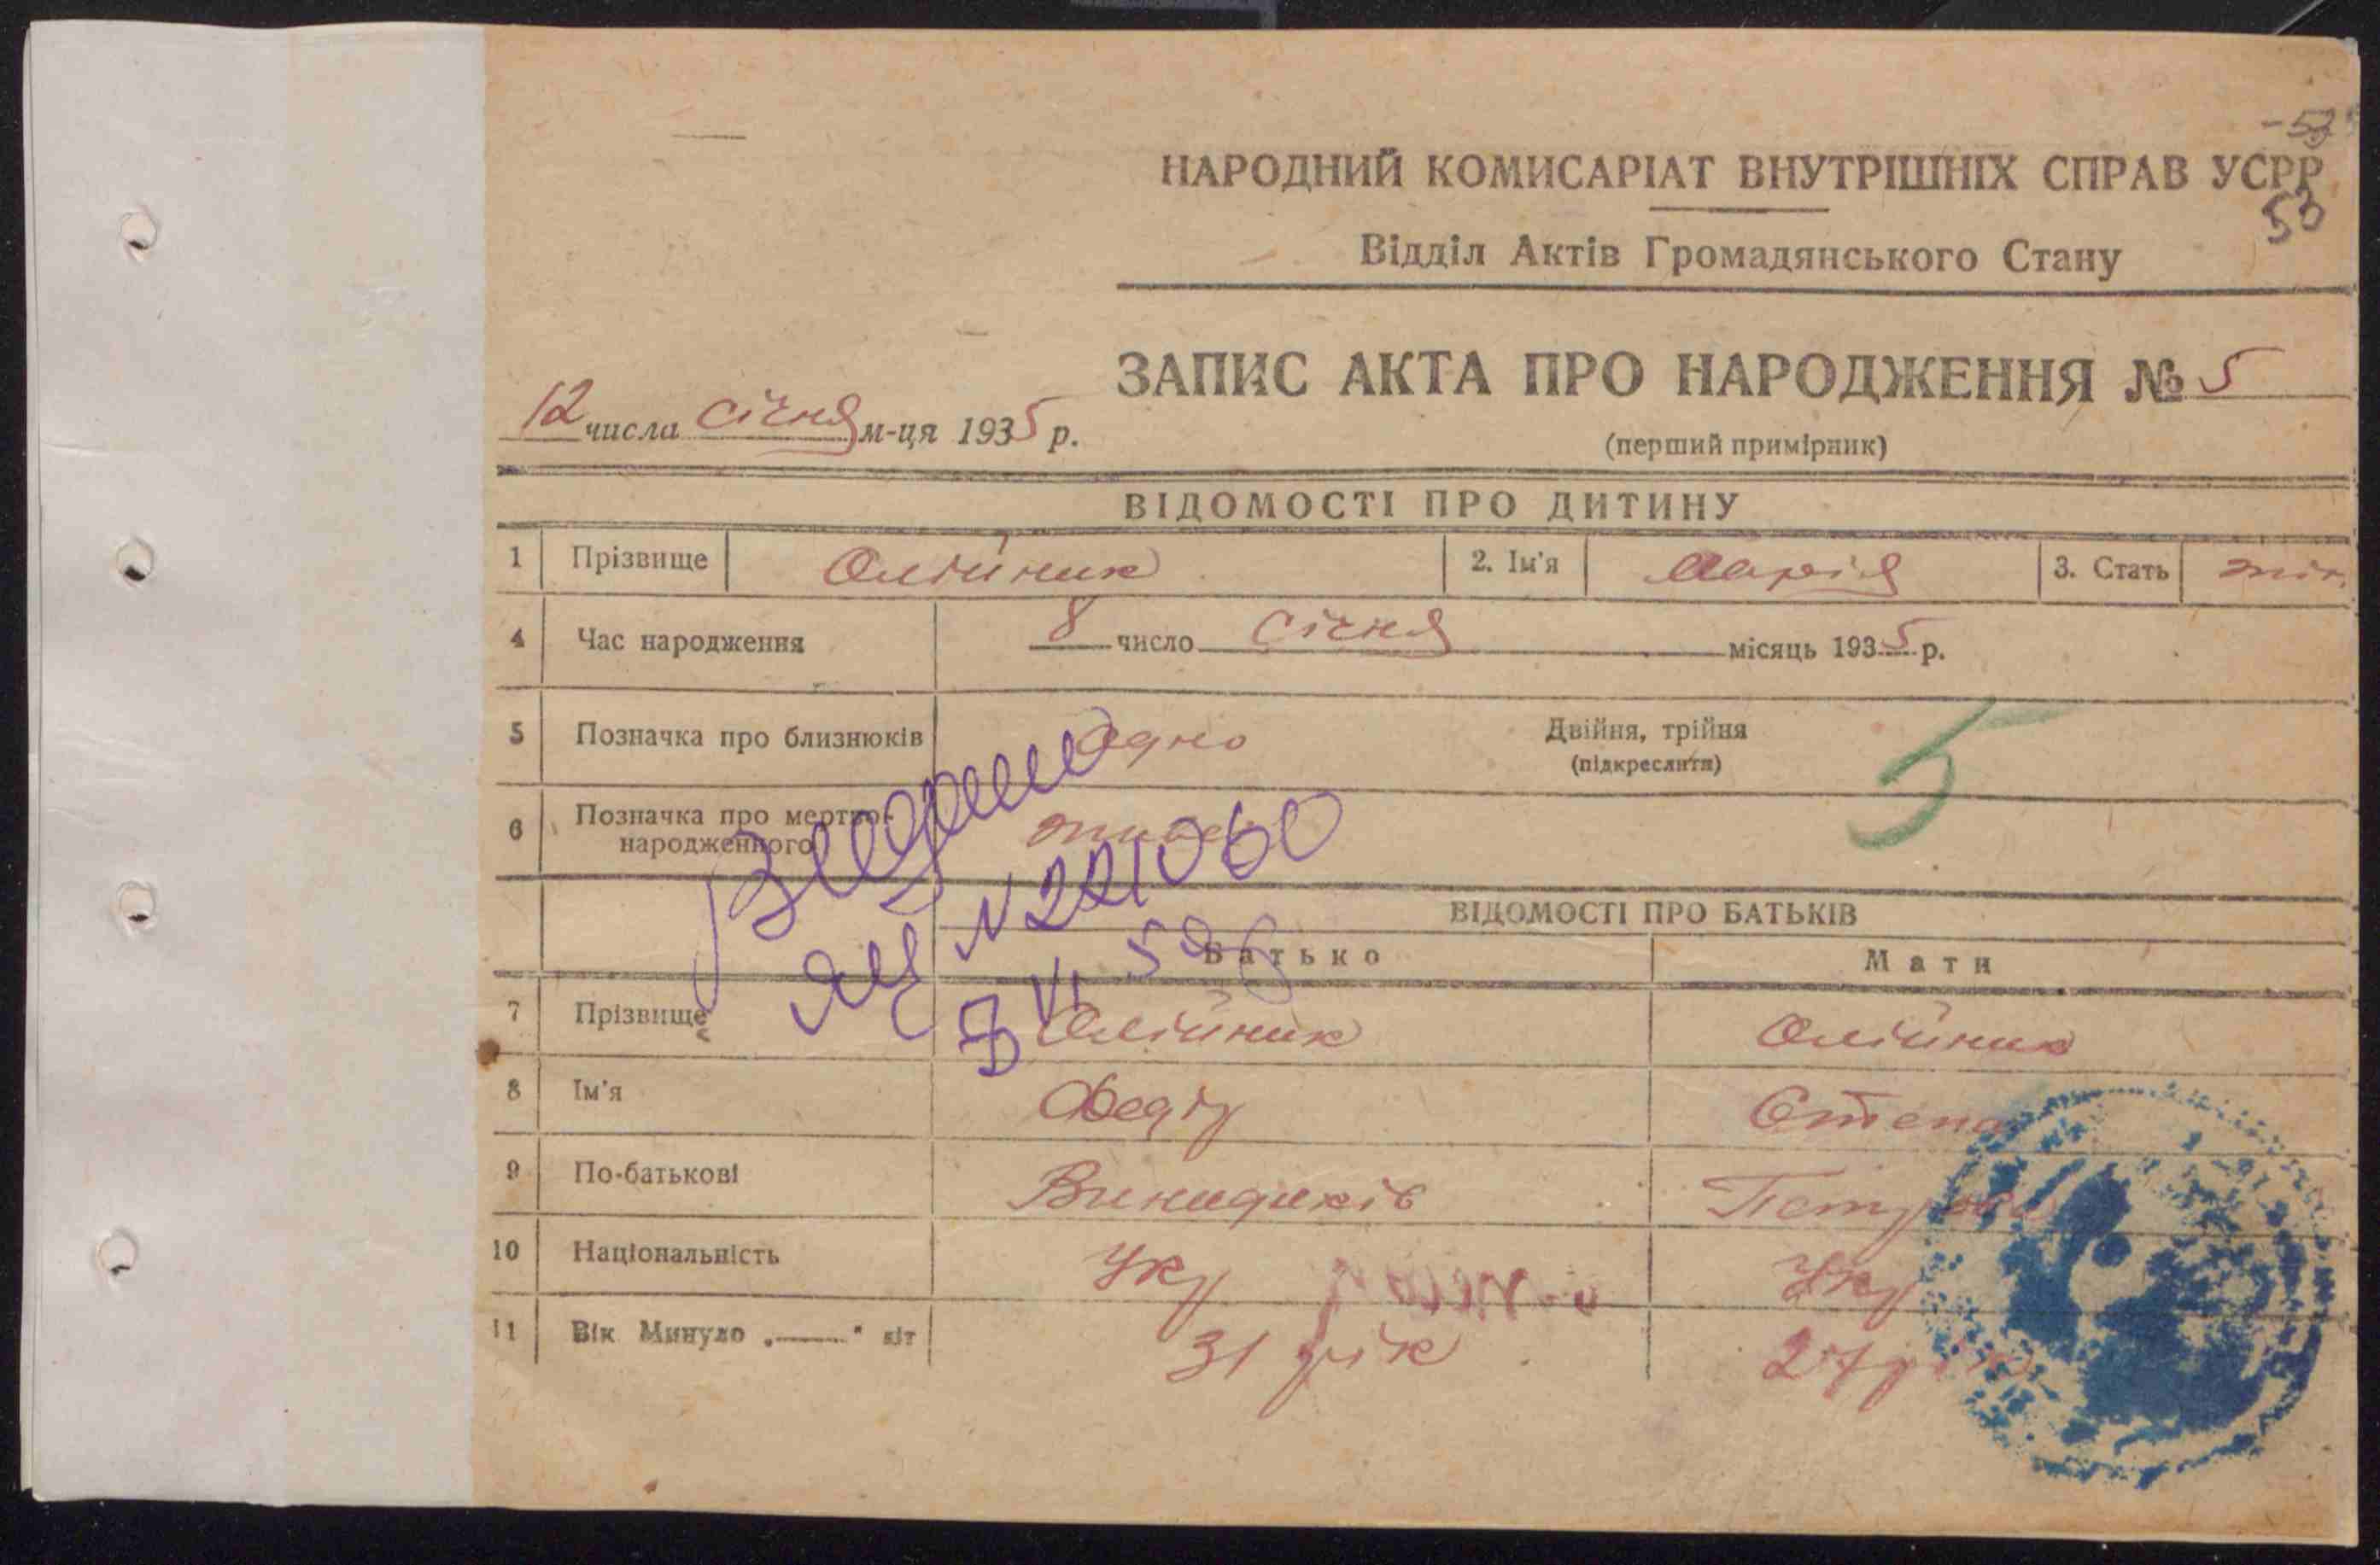 53
НАРОДНИЙ КОМИСАРІАТ ВНУТРІШНІХ СПРАВ УСРР
53
Відділ Актів Громадянського Стану
ЗАПИС АКТА ПРО НАРОДЖЕННЯ № 5
12 числа січня м-ця 1935 р.
(перший примірник)
ВІДОМОСТІ ПРО ДИТИНУ
1 Прізвище Олійник 2. Ім'я Марія 3. Стать жін.
4 Час народження 8 число січня місяць 1935 р.
5 Позначка про близнюків одно Двійня, трійня
(підкреслити)
5
6 Позначка про мертво-
народженного
№ 221060
ВІДОМОСТІ ПРО БАТЬКІВ
Батько Мати
7 Прізвище Олійник Олійник
8 Ім'я Федір Степа
9 По-батькові Петров
10 Національність Укр Укр
11 Вік Минуло „——" літ 31 рік 27